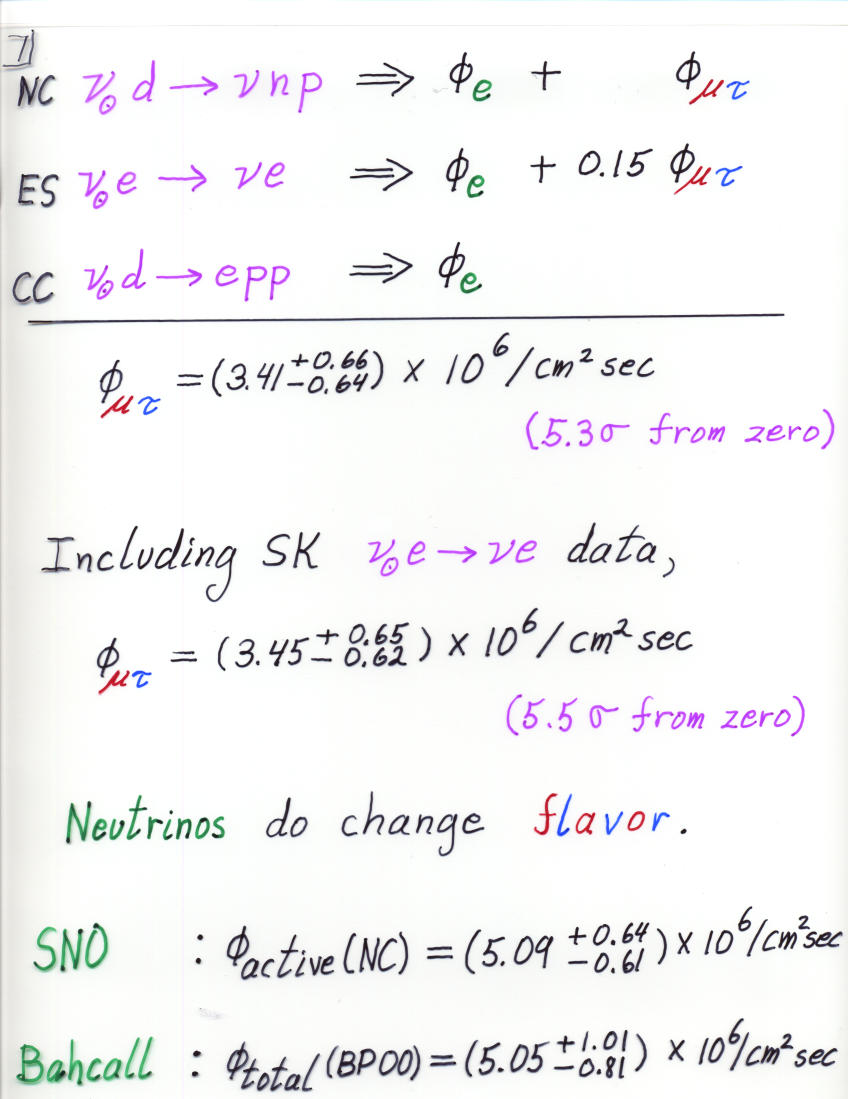 7
NC ν⊙ d → νnp ⇒ ϕe + ϕμτ
ES ν⊙ e → νe ⇒ ϕe + 0.15 ϕμτ
CC ν⊙ d → epp ⇒ ϕe
ϕμτ = (3.41 +0.66 −0.64) × 10⁶/cm² sec
(5.3σ from zero)
Including SK ν⊙ e → νe data,
ϕμτ = (3.45 +0.65 −0.62) × 10⁶/cm² sec
(5.5σ from zero)
Neutrinos do change flavor.
SNO : ϕactive(NC) = (5.09 +0.64 −0.61) × 10⁶/cm² sec
Bahcall : ϕtotal(BP00) = (5.05 +1.01 −0.81) × 10⁶/cm² sec